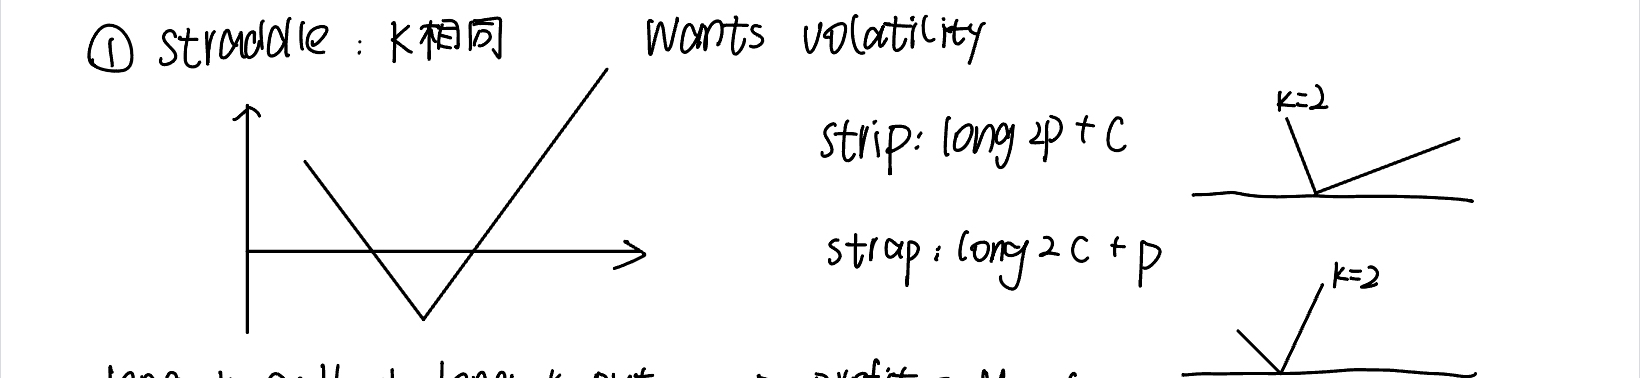 ① straddle : K相同 wants volatility
K=2
strip: long 2p + C
strap: long 2C + p
K=2